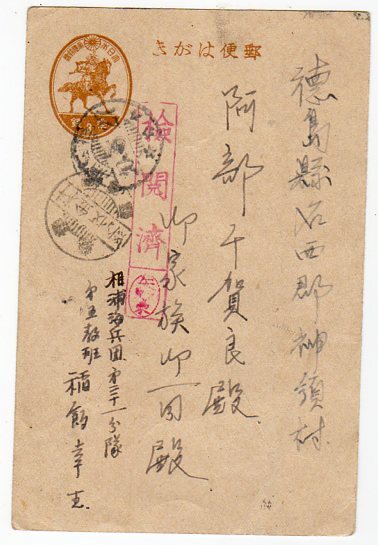 郵便はがき
徳島縣名西郡神領村
阿部千賀良殿
御家族御一同殿
検閲済
相浦海兵団第三十一分隊
第五教班
稲飯幸